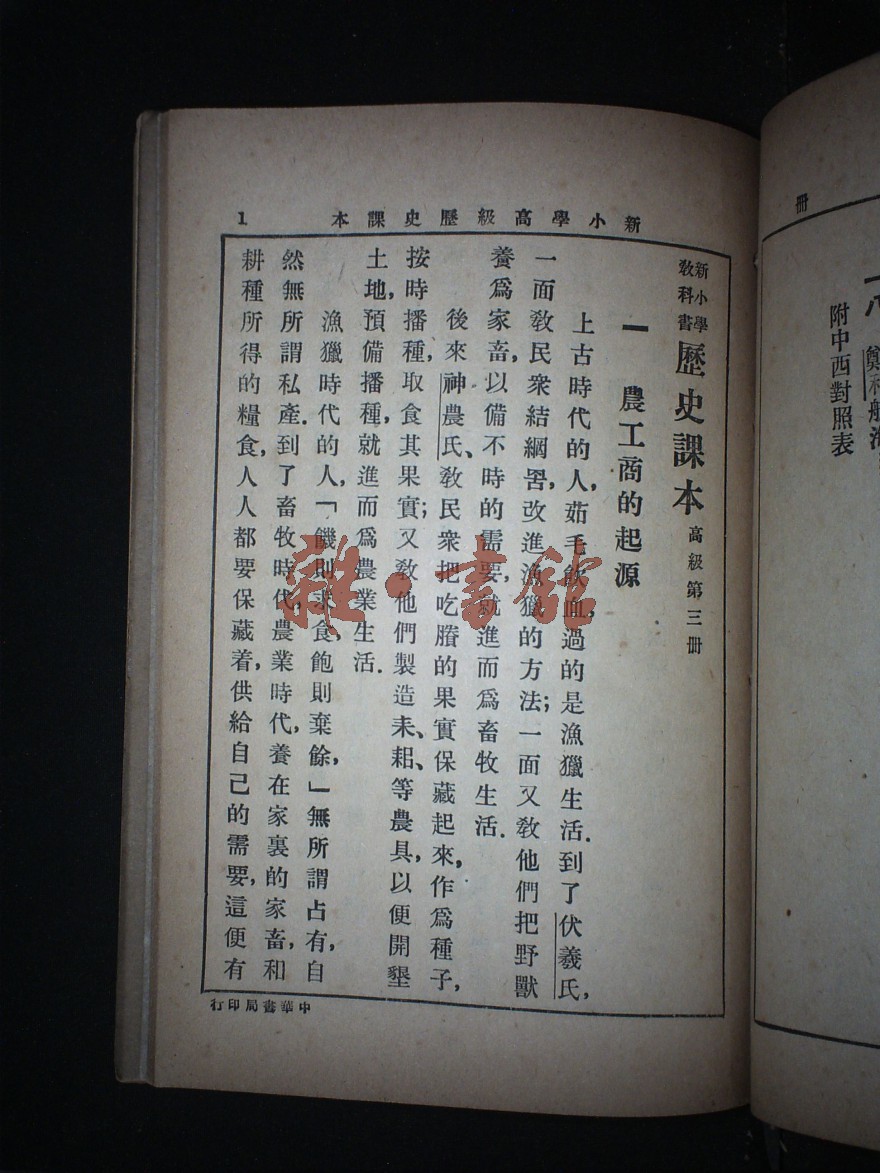 冊
鄭和航海
附中西對照表
新小學高級歷史課本
1
新小學
教科書
歷史課本 高級第三冊
一 農工商的起源
上古時代的人,茹毛飲血,過的是漁獵生活.到了伏羲氏,
一面教民衆結網罟,改進漁獵的方法;一面又教他們把野獸
養爲家畜,以備不時的需要,就進而爲畜牧生活.
後來神農氏、教民衆把吃賸的果實保藏起來,作爲種子,
按時播種,取食其果實;又教他們製造耒、耜、等農具,以便開墾
土地,預備播種,就進而爲農業生活.
漁獵時代的人,「饑則求食,飽則棄餘,」無所謂占有,自
然無所謂私產.到了畜牧時代,農業時代,養在家裏的家畜,和
耕種所得的糧食,人人都要保藏着,供給自己的需要,這便有
中華書局印行
雜·書館